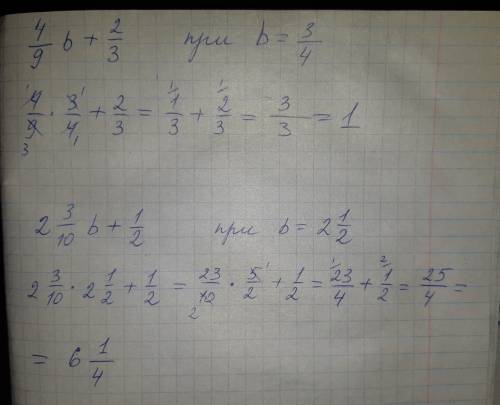 4/9 b + 2/3 при b = 3/4
4/9 · 3/4 + 2/3 = 1/3 + 2/3 = 3/3 = 1
2 3/10 b + 1/2 при b = 2 1/2
2 3/10 · 2 1/2 + 1/2 = 23/10 · 5/2 + 1/2 = 23/4 + 1/2 = 25/4 =
= 6 1/4